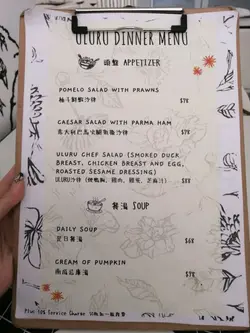 ULURU DINNER MENU
頭盤 APPETIZER
POMELO SALAD WITH PRAWNS
柚子鮮蝦沙律 $78
CAESAR SALAD WITH PARMA HAM
意大利巴馬火腿凱撒沙律 $78
ULURU CHEF SALAD (SMOKED DUCK
BREAST, CHICKEN BREAST AND EGG,
ROASTED SESAME DRESSING)
ULURU沙律 $78
餐湯 SOUP
DAILY SOUP
是日餐湯 $68
CREAM OF PUMPKIN
南瓜忌廉湯 $78
Plus 10% Service Charge 另收加一服務費